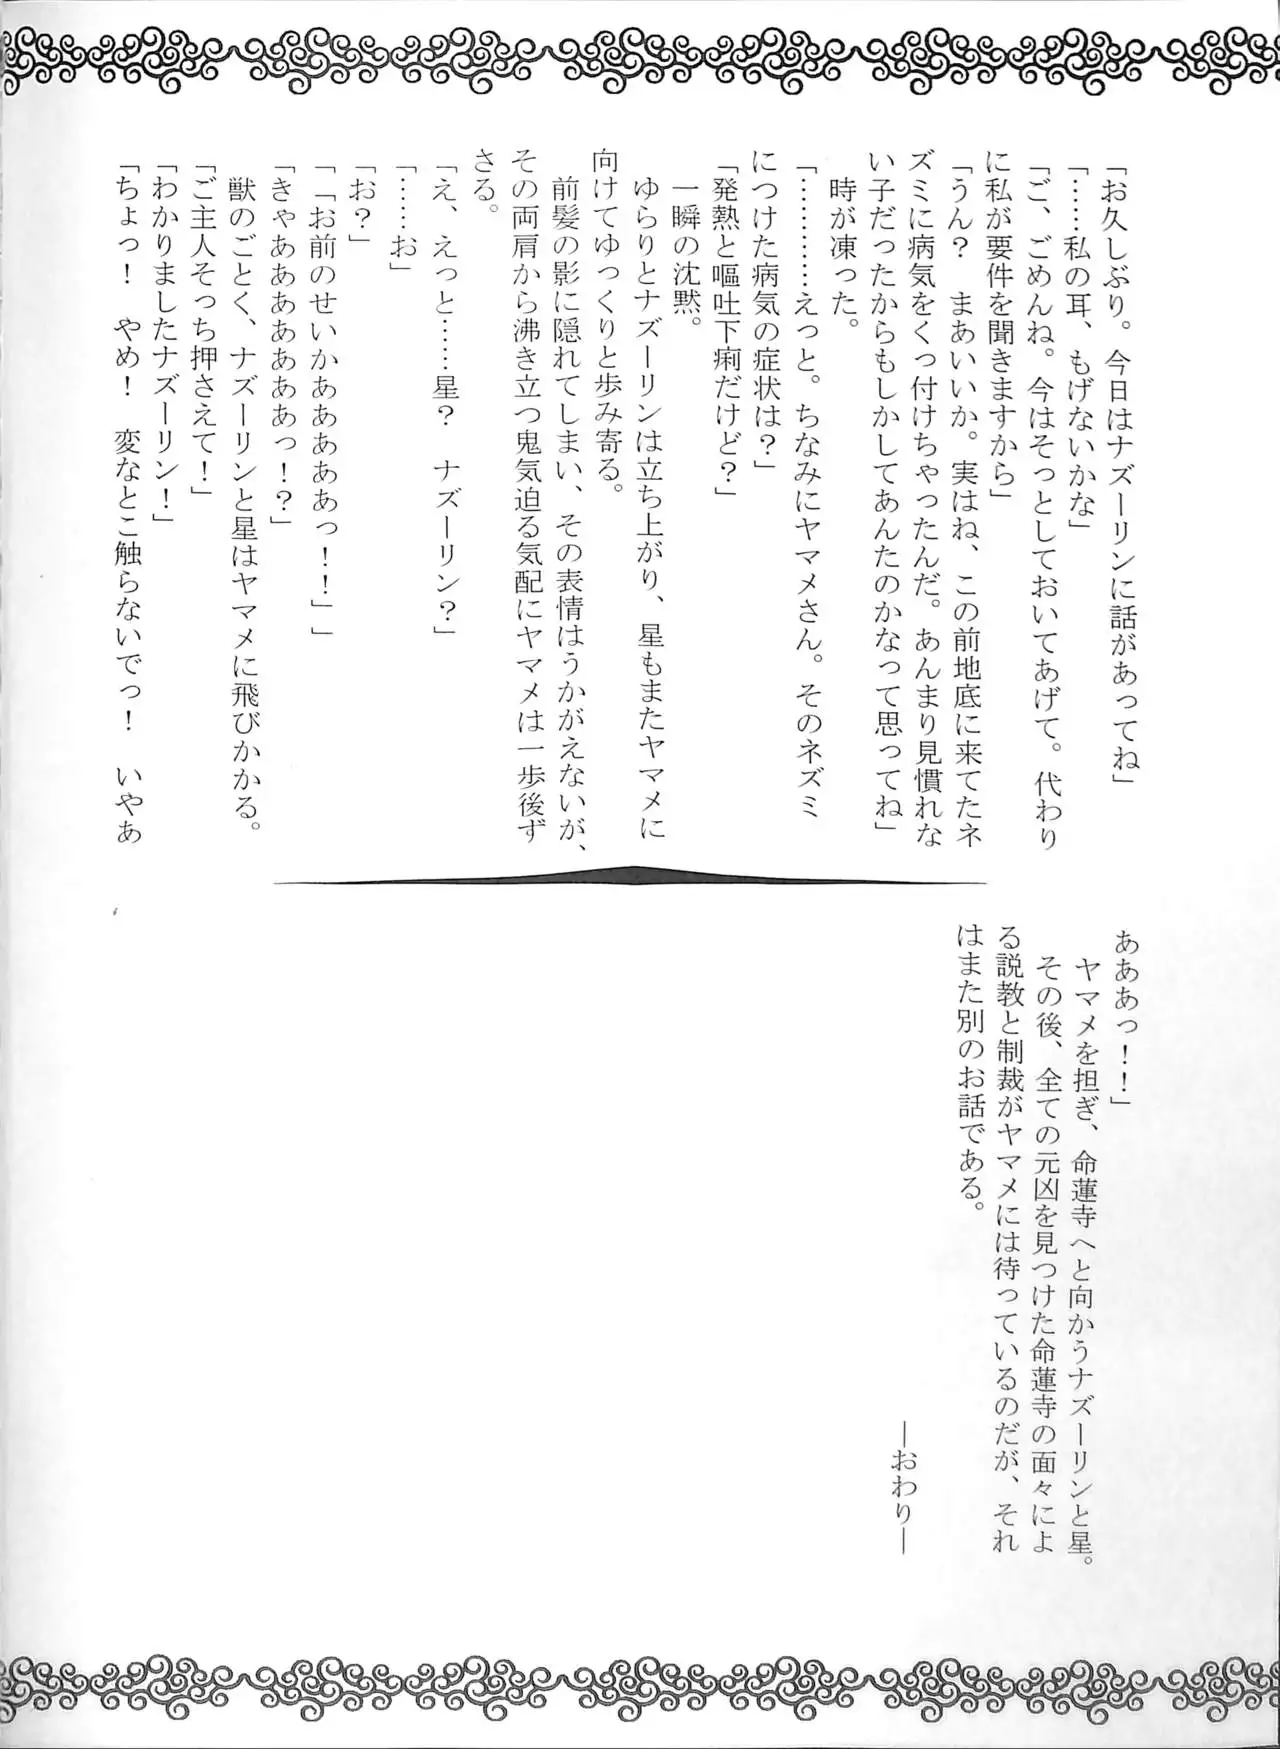 「お久しぶり。今日はナズーリンに話があってね」
「……私の耳、もげないかな」
「ご、ごめんね。今はそっとしておいてあげて。代わり
に私が要件を聞きますから」
「うん？　まあいいか。実はね、この前地底に来てたネ
ズミに病気をくっ付けちゃったんだ。あんまり見慣れな
い子だったからもしかしてあんたのかなって思ってね」
　時が凍った。
「…………えっと。ちなみにヤマメさん。そのネズミ
につけた病気の症状は？」
「発熱と嘔吐下痢だけど？」
　一瞬の沈黙。
　ゆらりとナズーリンは立ち上がり、星もまたヤマメに
向けてゆっくりと歩み寄る。
　前髪の影に隠れてしまい、その表情はうかがえないが、
その両肩から沸き立つ鬼気迫る気配にヤマメは一歩後ず
さる。
「え、えっと……星？　ナズーリン？」
「……お」
「お？」
「「お前のせいかああああああっ！！」」
「きゃあああああああああっ！？」
　獣のごとく、ナズーリンと星はヤマメに飛びかかる。
「ご主人そっち押さえて！」
「わかりましたナズーリン！」
「ちょっ！　やめ！　変なとこ触らないでっ！　いやあ
あああっ！！」
　ヤマメを担ぎ、命蓮寺へと向かうナズーリンと星。
　その後、全ての元凶を見つけた命蓮寺の面々によ
る説教と制裁がヤマメには待っているのだが、それ
はまた別のお話である。
―おわり―